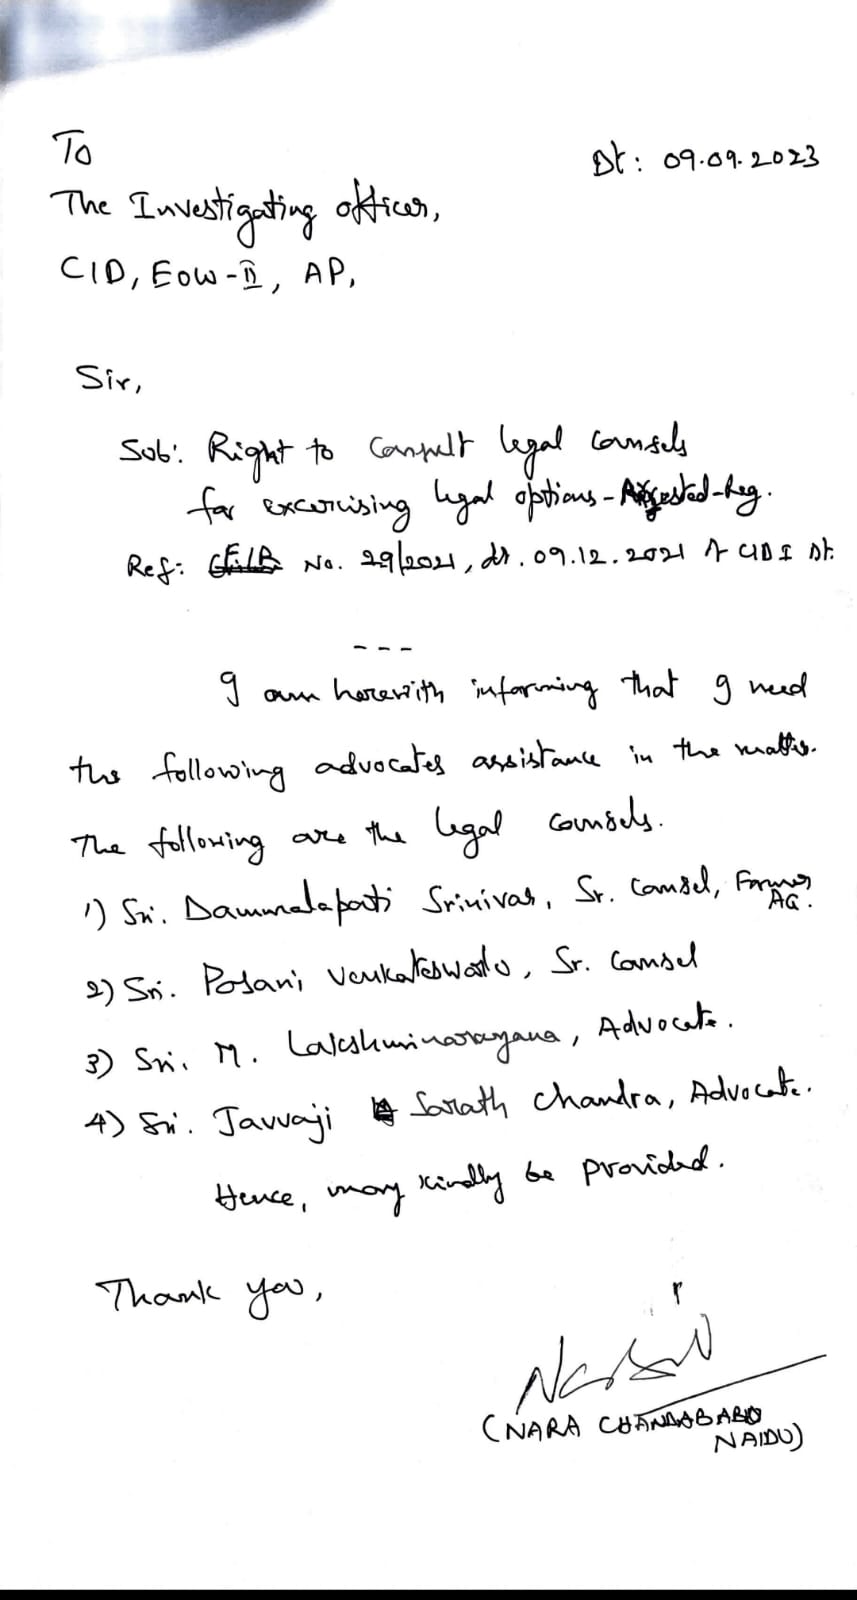 To
Dt: 09.09.2023
The Investigating officer,
CID, EOW-II, AP,
Sir,
Sub: Right to consult legal counsels
for excercising legal options - Arrested - Reg.
Ref: No. 29/2021, dt. 09.12.2021 CID
---
I am herewith informing that I need
the following advocates assistance in the matter.
The following are the legal counsels.
1) Sri. Dammalapati Srinivas, Sr. Counsel, Former AG.
2) Sri. Posani Venkateswarlu, Sr. Counsel
3) Sri. M. Lakshminarayana, Advocate.
4) Sri. Javvaji Sarath Chandra, Advocate.
Hence, may kindly be provided.
Thank you,
(NARA CHANDABABU
NAIDU)